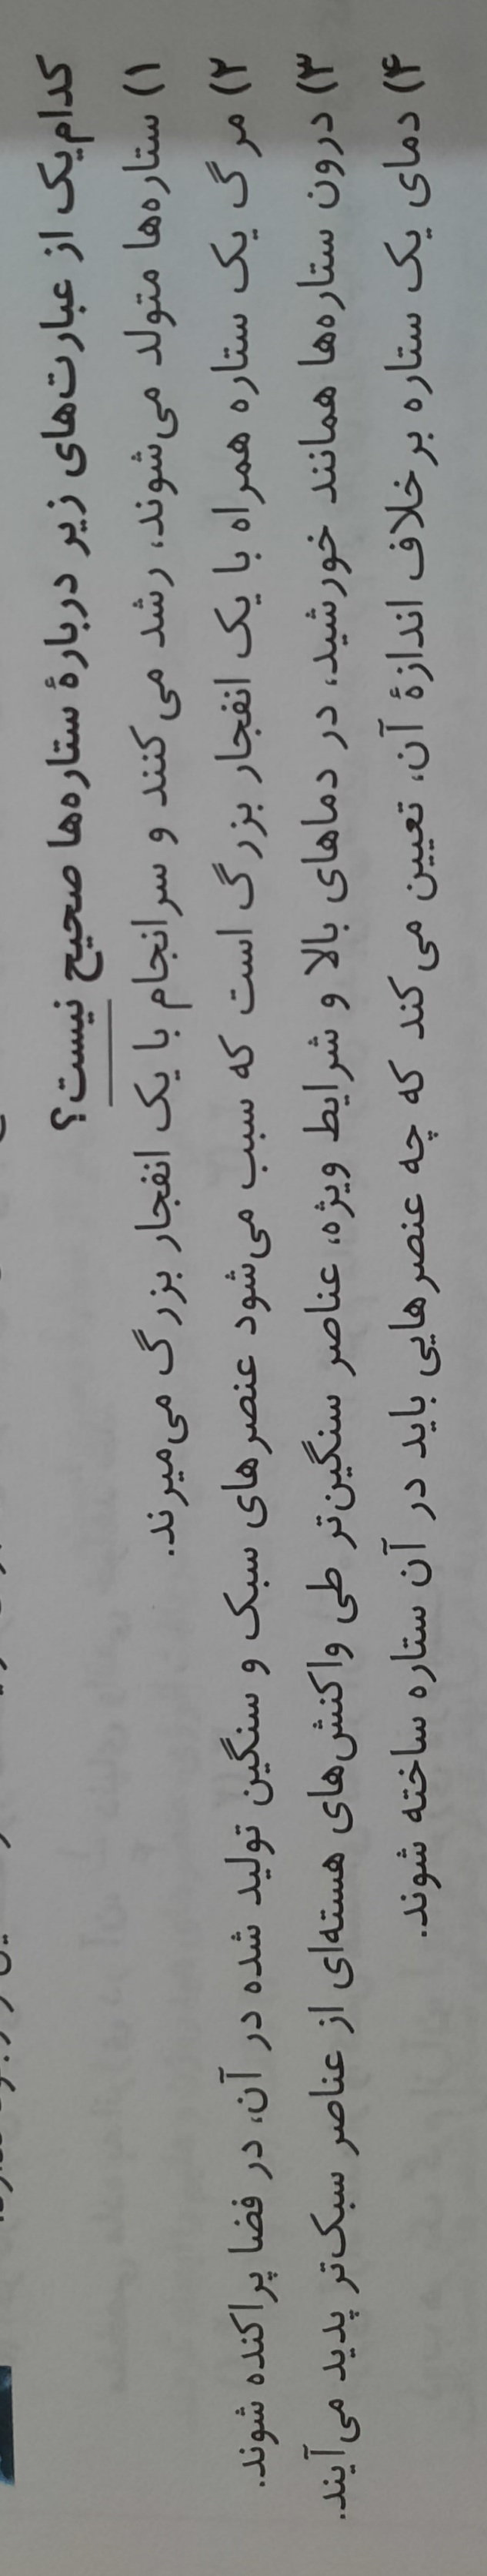 کدام‌یک از عبارت‌های زیر دربارهٔ ستاره‌ها صحیح نیست؟
۱) ستاره‌ها متولد می‌شوند، رشد می‌کنند و سرانجام با یک انفجار بزرگ می‌میرند.
۲) مرگ یک ستاره همراه با یک انفجار بزرگ است که سبب می‌شود عنصرهای سبک و سنگین تولید شده در آن، در فضا پراکنده شوند.
۳) درون ستاره‌ها همانند خورشید، در دماهای بالا و شرایط ویژه، عناصر سنگین‌تر طی واکنش‌های هسته‌ای از عناصر سبک‌تر پدید می‌آیند.
۴) دمای یک ستاره برخلاف اندازهٔ آن، تعیین می‌کند که چه عنصرهایی باید در آن ستاره ساخته شوند.